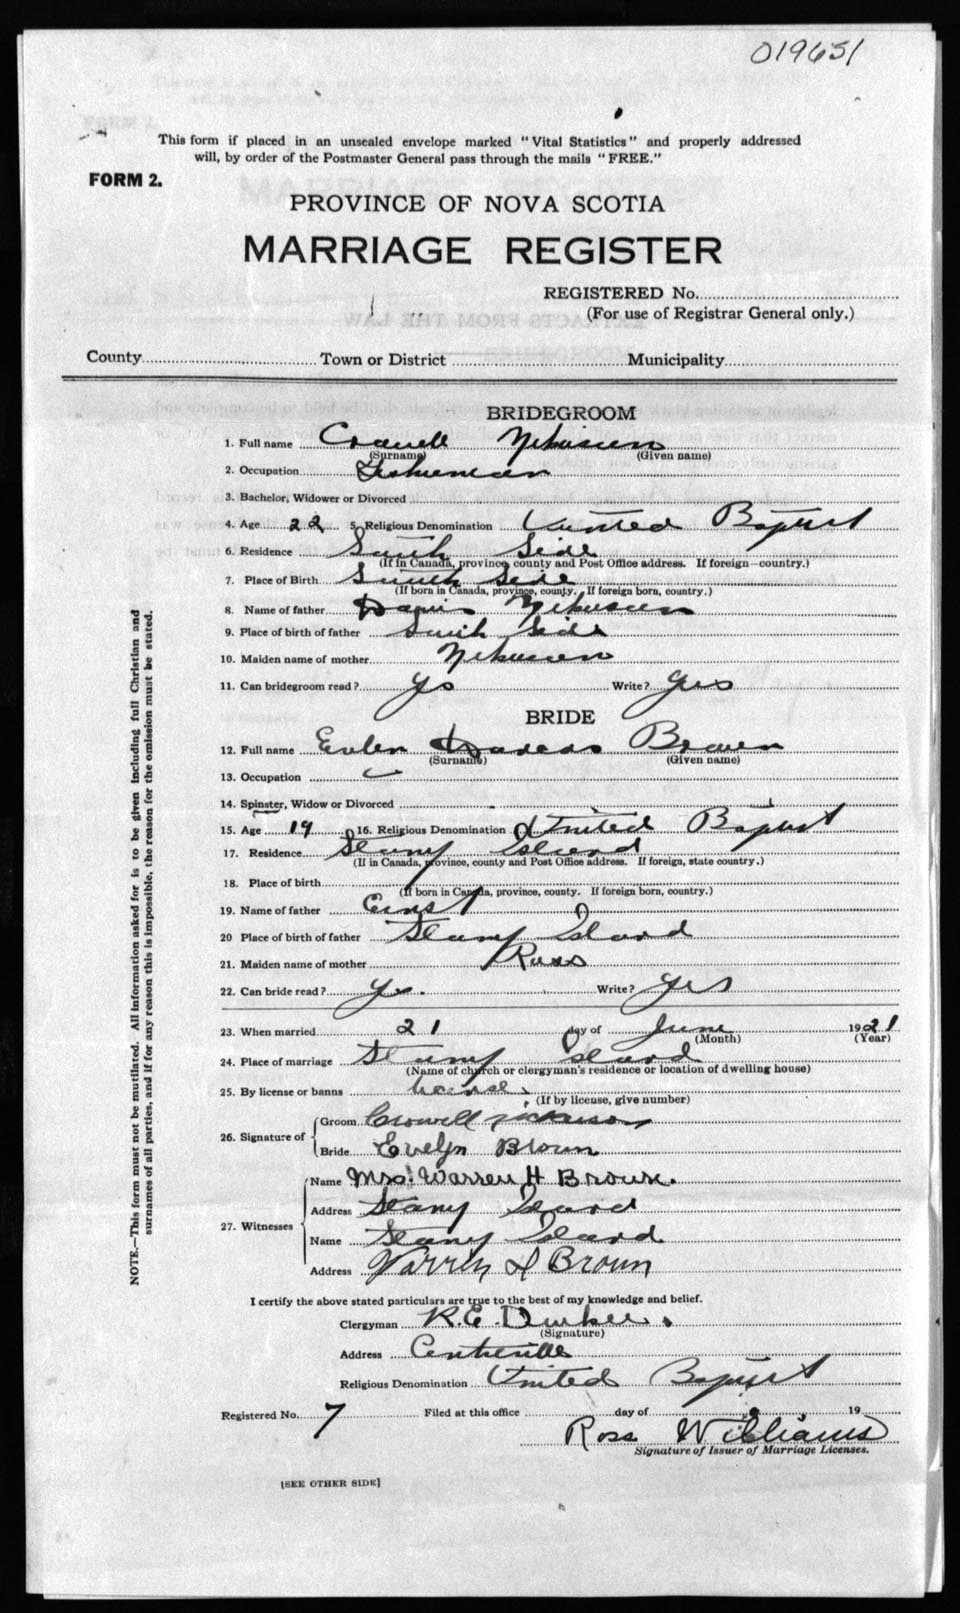 019651
This form if placed in an unsealed envelope marked "Vital Statistics" and properly addressed
will, by order of the Postmaster General pass through the mails "FREE."
FORM 2.
PROVINCE OF NOVA SCOTIA
MARRIAGE REGISTER
REGISTERED No.
(For use of Registrar General only.)
County Town or District Municipality
BRIDEGROOM
1. Full name
(Surname) (Given name)
2. Occupation
3. Bachelor, Widower or Divorced
4. Age 22 5. Religious Denomination United Baptist
6. Residence South Side
(If in Canada, province, county and Post Office address. If foreign—country.)
7. Place of Birth South Side
(If born in Canada, province, county. If foreign born, country.)
8. Name of father
9. Place of birth of father South Side
10. Maiden name of mother
11. Can bridegroom read? Yes Write? Yes
BRIDE
12. Full name Brown
(Surname) (Given name)
13. Occupation
14. Spinster, Widow or Divorced
15. Age 19 16. Religious Denomination United Baptist
17. Residence Stony Island
(If in Canada, province, county and Post Office address. If foreign, state country.)
18. Place of birth
(If born in Canada, province, county. If foreign born, country.)
19. Name of father Ernst
20 Place of birth of father Stony Island
21. Maiden name of mother Ross
22. Can bride read? Yes. Write? Yes
23. When married 21 day of June 1921
(Month) (Year)
24. Place of marriage Stony Island
(Name of church or clergyman's residence or location of dwelling house)
25. By license or banns license
(If by license, give number)
26. Signature of Groom Crowell Nickerson
Bride Evelyn Brown
27. Witnesses Name Mrs. Warren H Brown.
Address Stony Island
Name Stony Island
Address Warren H Brown
I certify the above stated particulars are true to the best of my knowledge and belief.
Clergyman R.E. Durkee.
(Signature)
Address Centreville
Religious Denomination United Baptist
Registered No. 7 Filed at this office day of 19
Ross Williams
Signature of Issuer of Marriage Licenses.
[SEE OTHER SIDE]
NOTE.—This form must not be mutilated. All information asked for is to be given including full Christian and
surnames of all parties, and if for any reason this is impossible, the reason for the omission must be stated.